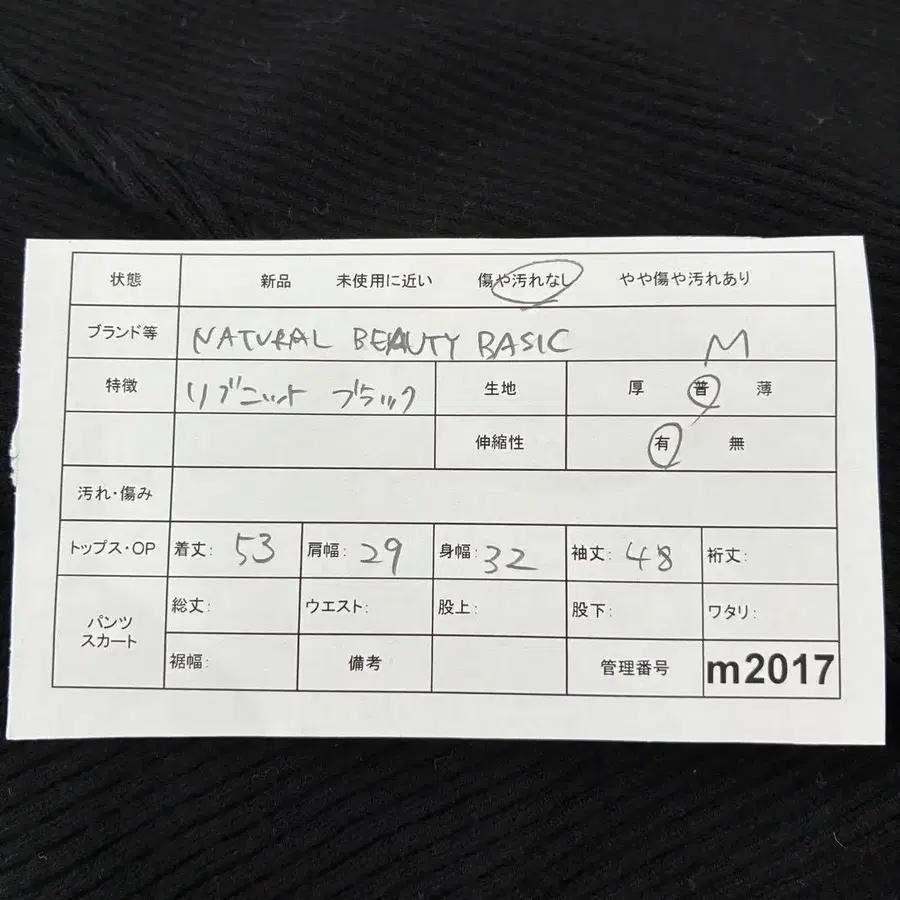 状態 新品 未使用に近い 傷や汚れなし やや傷や汚れあり
ブランド等 NATURAL BEAUTY BASIC M
特徴 リブニット ブラック 生地 厚 普 薄
伸縮性 有 無
汚れ・傷み
トップス・OP 着丈: 53 肩幅: 29 身幅: 32 袖丈: 48 裄丈:
パンツ スカート 総丈: ウエスト: 股上: 股下: ワタリ:
裾幅: 備考 管理番号 m2017